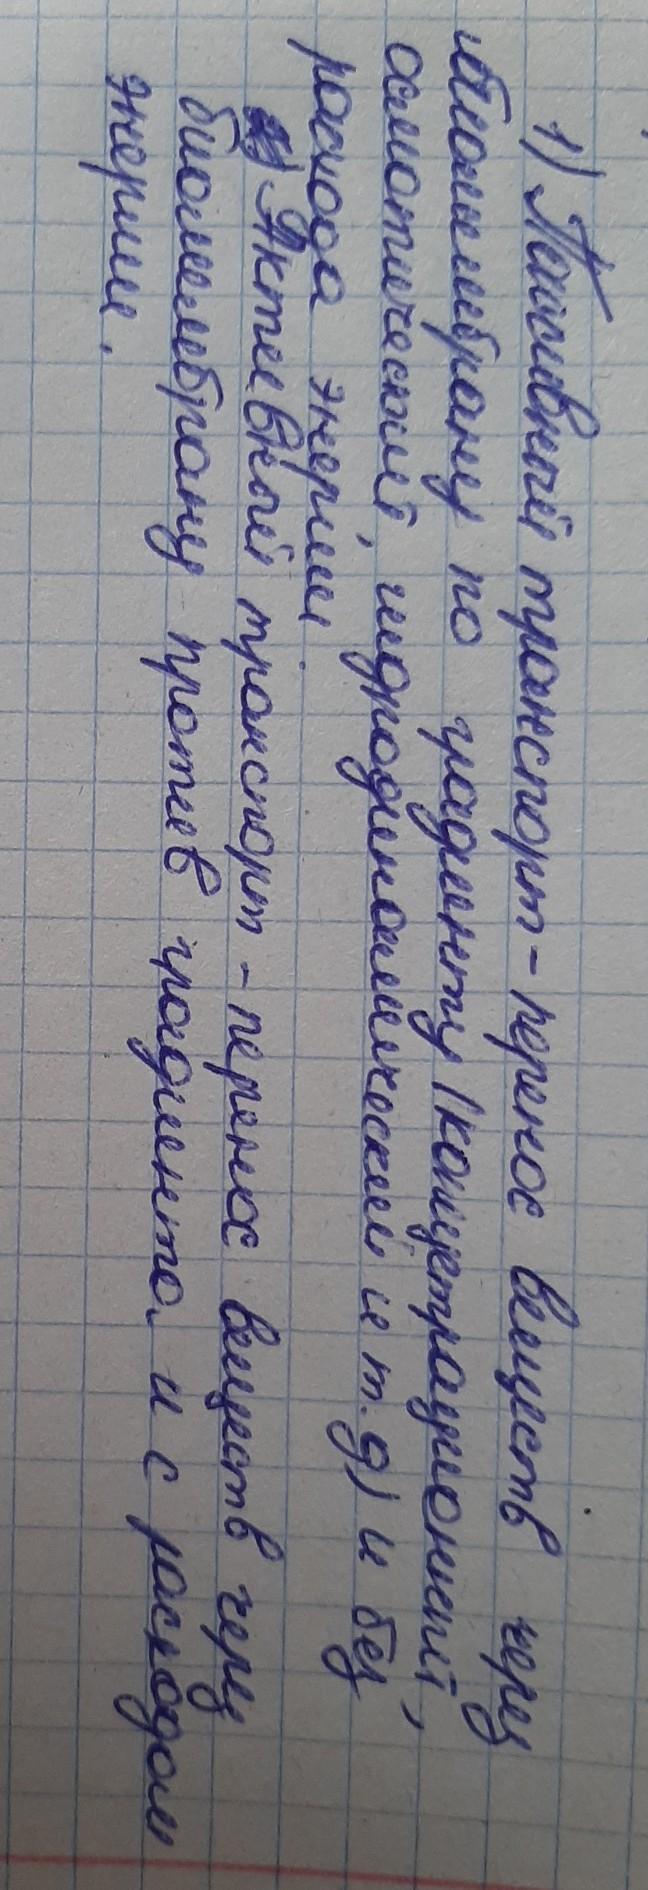 1) Пассивный транспорт - перенос веществ через
биомембрану по градиенту (концетрационный,
осмотический, гидродинамический и т.д) и без
расхода энергии
Активный транспорт - перенос веществ через
биомембрану против градиента и с расходом
энергии.